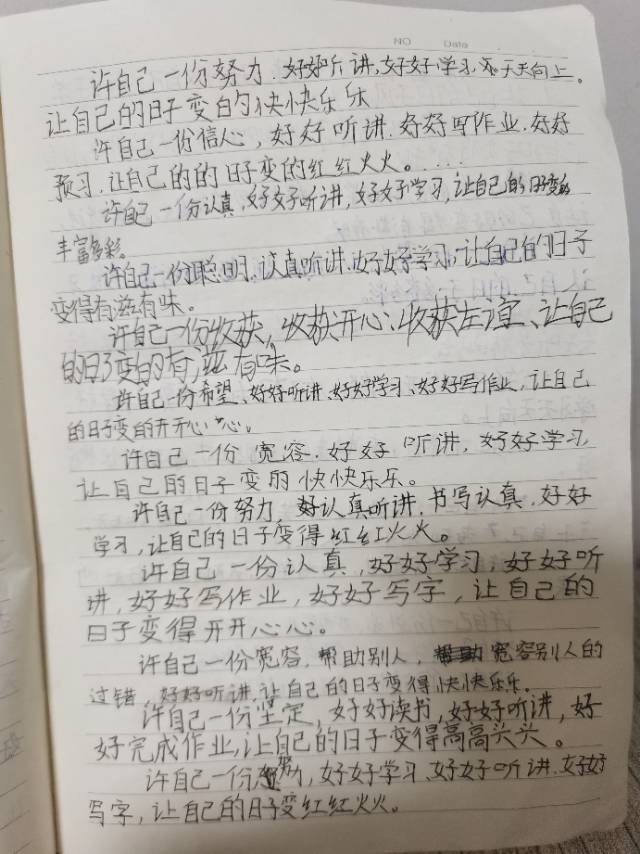 许自己一份努力.好好听讲,好好学习,天天向上。
让自己的日子变的快快乐乐
许自己一份信心,好好听讲.好好写作业.好好
预习.让自己的的日子变的红红火火。....
许自己一份认真,好好听讲,好好学习,让自己的日子变的
丰富多彩。
许自己一份聪明.认真听讲.好好学习,让自己的日子
变得有滋有味。
许自己一份收获,收获开心、收获友谊、让自己
的日子变的有滋有味。
许自己一份希望、好好听讲、好好学习、好好写作业,让自己
的日子变的开开心心。
许自己一份宽容.好好听讲,好好学习,
让自己的日子变的快快乐乐。
许自己一份努力,认真听讲.书写认真.好好
学习,让自己的日子变得红红火火。
许自己一份认真,好好学习,好好听
讲,好好写作业,好好写字,让自己的
日子变得开开心心。
许自己一份宽容.帮助别人,宽容别人的
过错,好好听讲.让自己的日子变得快快乐乐.
许自己一份坚定,好好读书,好好听讲,好
好完成作业,让自己的日子变得高高兴兴。
许自己一份努力,好好学习、好好听讲.好好
写字,让自己的日子变红红火火。